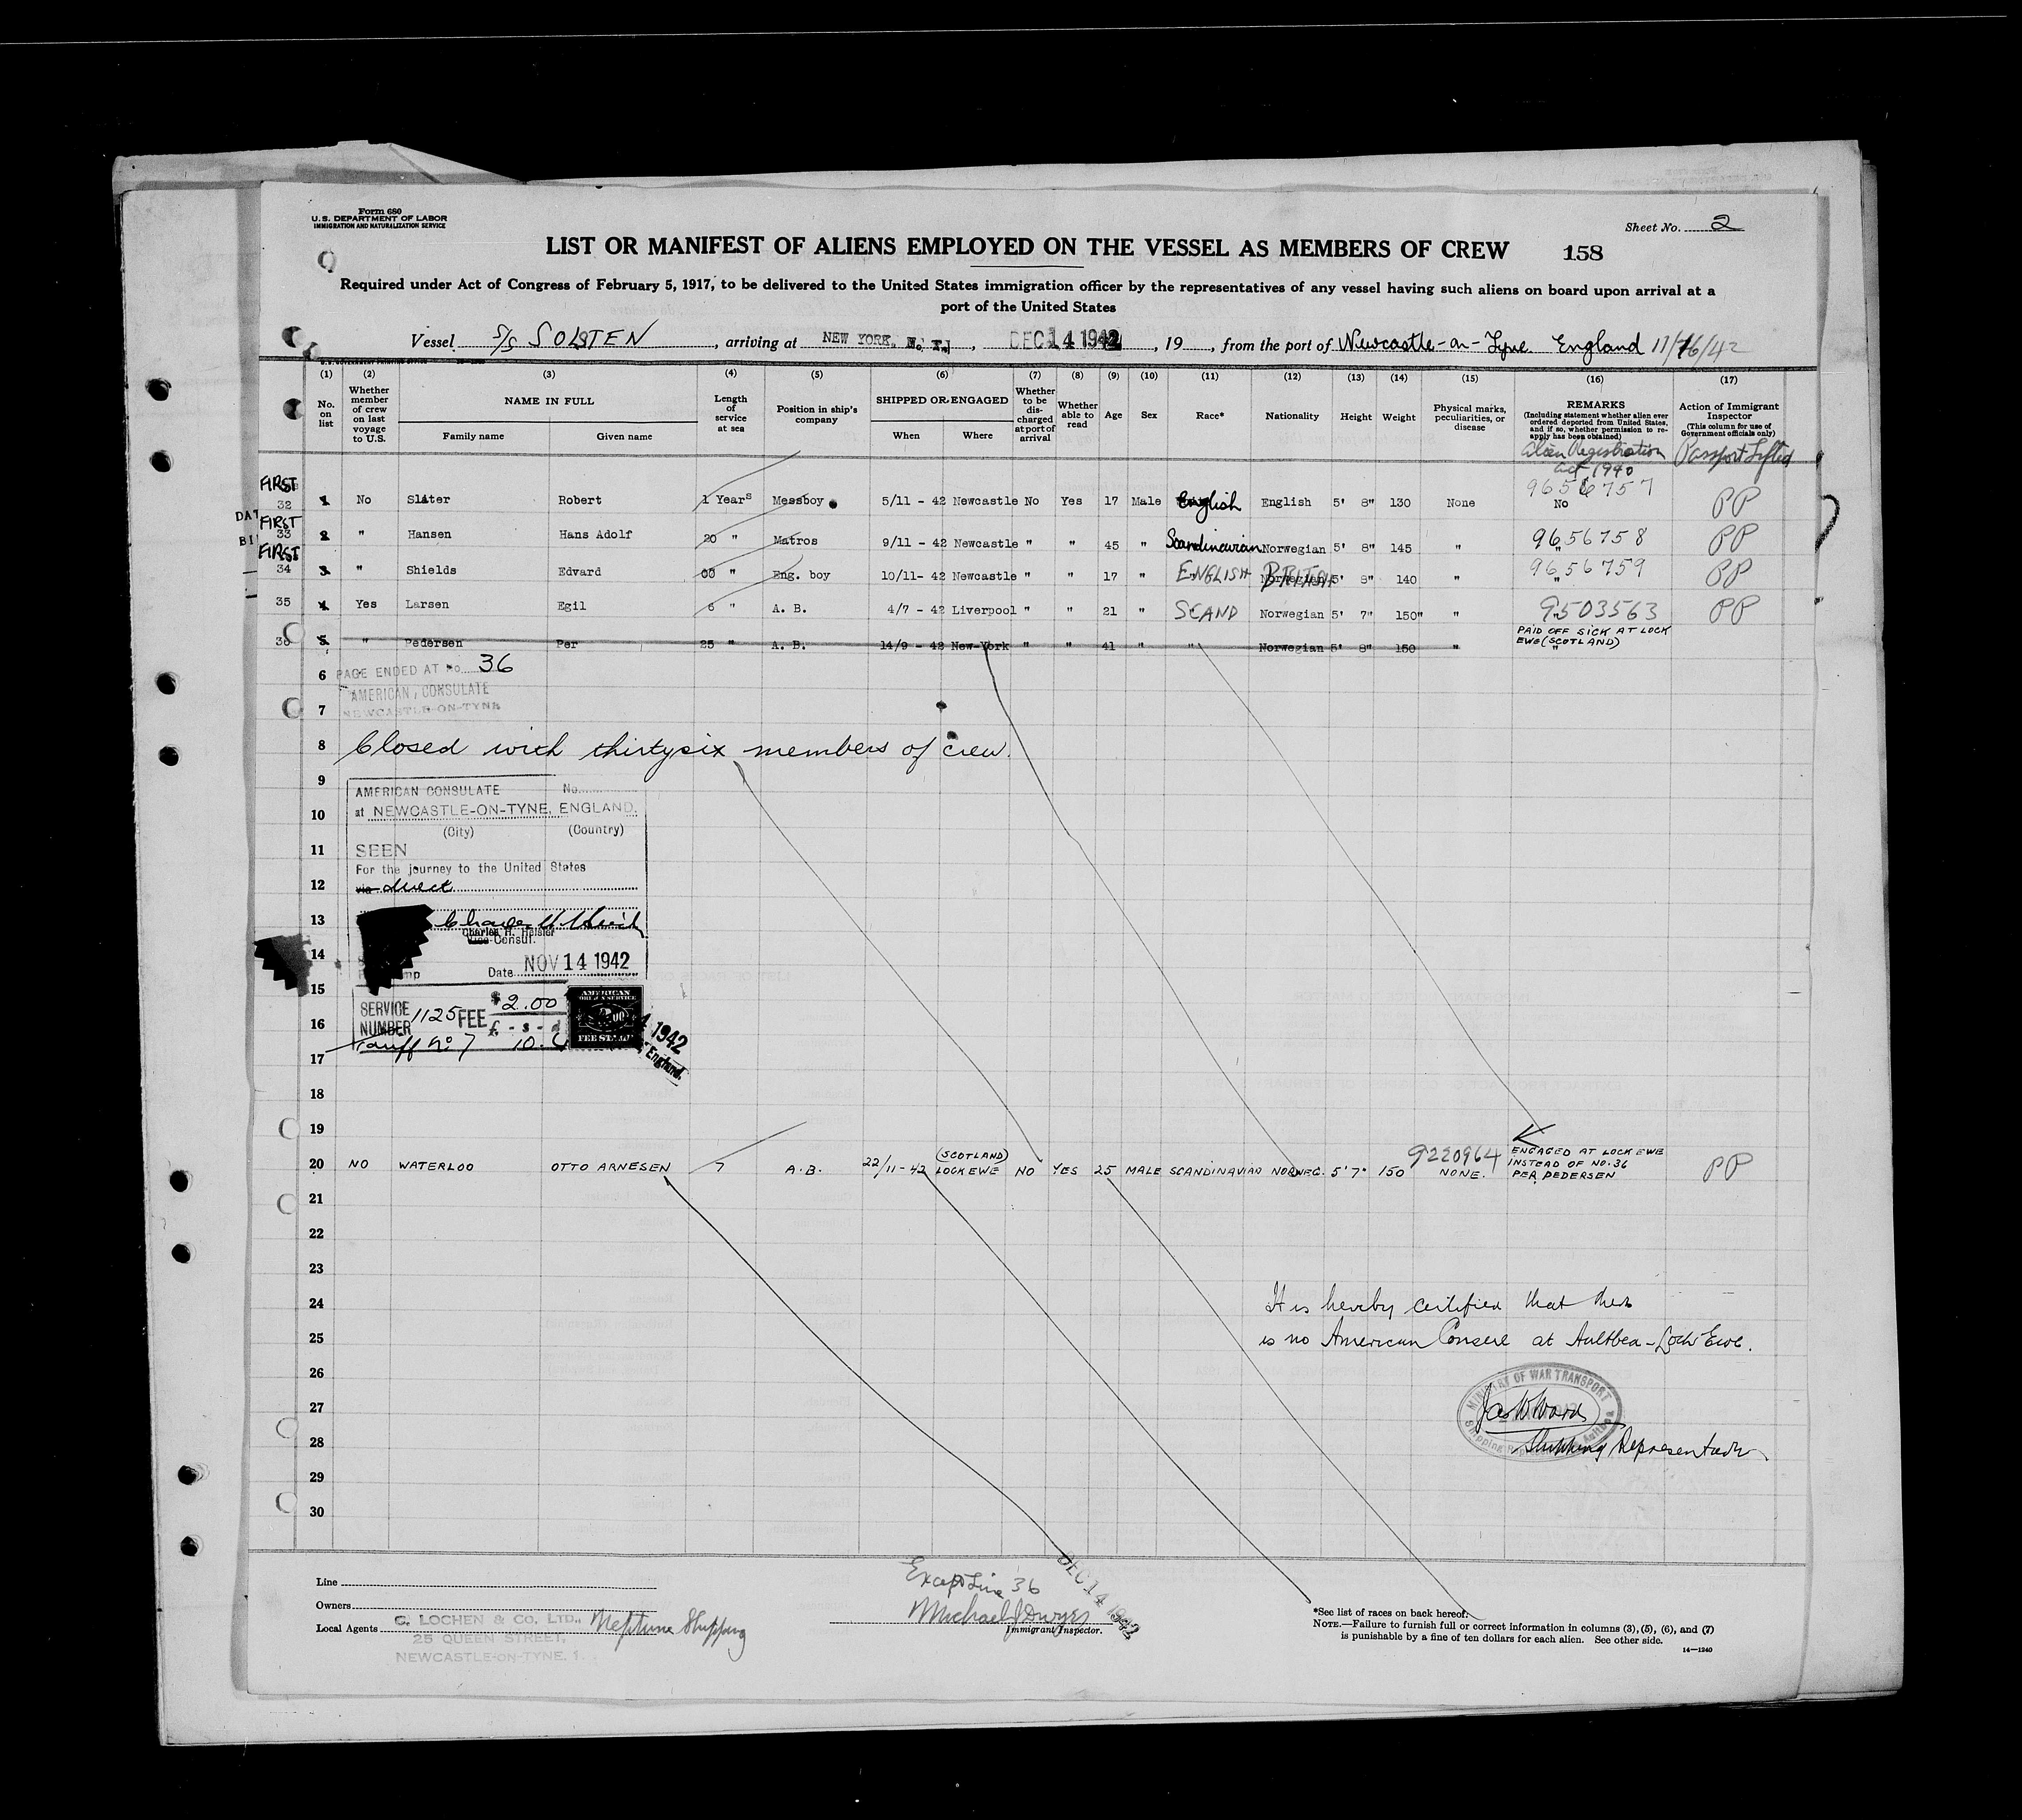 Form 680
U.S. DEPARTMENT OF LABOR
IMMIGRATION AND NATURALIZATION SERVICE
Sheet No. 2
LIST OR MANIFEST OF ALIENS EMPLOYED ON THE VESSEL AS MEMBERS OF CREW 158
Required under Act of Congress of February 5, 1917, to be delivered to the United States immigration officer by the representatives of any vessel having such aliens on board upon arrival at a
port of the United States
Vessel S/S SOLSTEN, arriving at NEW YORK, N. Y., DEC 14 1942, 19, from the port of Newcastle-on-Tyne England 11/16/42
(1) (2) (3) (4) (5) (6) (7) (8) (9) (10) (11) (12) (13) (14) (15) (16) (17)
No. on list
Whether member of crew on last voyage to U.S.
NAME IN FULL
Family name Given name
Length of service at sea
Position in ship's company
SHIPPED OR ENGAGED
When Where
Whether to be discharged at port of arrival
Whether able to read
Age
Sex
Race*
Nationality
Height
Weight
Physical marks, peculiarities, or disease
REMARKS
(Including statement whether alien ever ordered deported from United States, and if so, whether permission to reapply has been obtained)
Alien Registration Act 1940
Action of Immigrant Inspector
(This column for use of Government officials only)
Passport Lifted
FIRST 32 1 No Slater Robert 1 Years Messboy 5/11 - 42 Newcastle No Yes 17 Male English English 5' 8" 130 None 9656757 No PP
FIRST 33 2 " Hansen Hans Adolf 20 " Matros 9/11 - 42 Newcastle " " 45 " Scandinavian Norwegian 5' 8" 145 " 9656758 " PP
FIRST 34 3 " Shields Edvard 00 " Eng. boy 10/11- 42 Newcastle " " 17 " ENGLISH BRITISH 5' 8" 140 " 9656759 " PP
35 4 Yes Larsen Egil 6 " A. B. 4/7 - 42 Liverpool " " 21 " SCAND Norwegian 5' 7" 150" " 9503563 PP
36 5 " Pedersen Per 25 " A. B. 14/9 - 42 New-York " " 41 " " Norwegian 5' 8" 150 " PAID OFF SICK AT LOCK EWE (SCOTLAND) "
6 PAGE ENDED AT No. 36
AMERICAN CONSULATE
7 NEWCASTLE-ON-TYNE
8 Closed with thirtysix members of crew.
9 AMERICAN CONSULATE No.
10 at NEWCASTLE-ON-TYNE, ENGLAND.
(City) (Country)
11 SEEN
For the journey to the United States
12 via direct
13
Charles H. Heisler
Vice Consul.
14 Date NOV 14 1942
15
SERVICE NUMBER 1125 FEE $ 2.00
16 £ - s - d
Tariff No 7 10.
AMERICAN FOREIGN SERVICE
FEE STAMP
1942
England.
17
18
19
20 NO WATERLOO OTTO ARNESEN 7 A.B. 22/11-42 (SCOTLAND) LOCK EWE NO YES 25 MALE SCANDINAVIAN NORWEG. 5'7" 150 9220964 NONE. ENGAGED AT LOCK EWE INSTEAD OF NO. 36 PER PEDERSEN PP
21
22
23
24 It is hereby certified that there
25 is no American Consul at Aultbea - Loch Ewe.
26
MINISTRY OF WAR TRANSPORT
27 Jas W Ward
28 Shipping Representative
29
30
Line
Owners
Local Agents Neptune Shipping
C. LOCHEN & CO. LTD.,
25 QUEEN STREET,
NEWCASTLE-ON-TYNE, 1.
Except Line 36
Michael J Dwyer
Immigrant Inspector.
DEC 14 1942
*See list of races on back hereof.
NOTE.—Failure to furnish full or correct information in columns (3), (5), (6), and (7)
is punishable by a fine of ten dollars for each alien. See other side.
14—1240